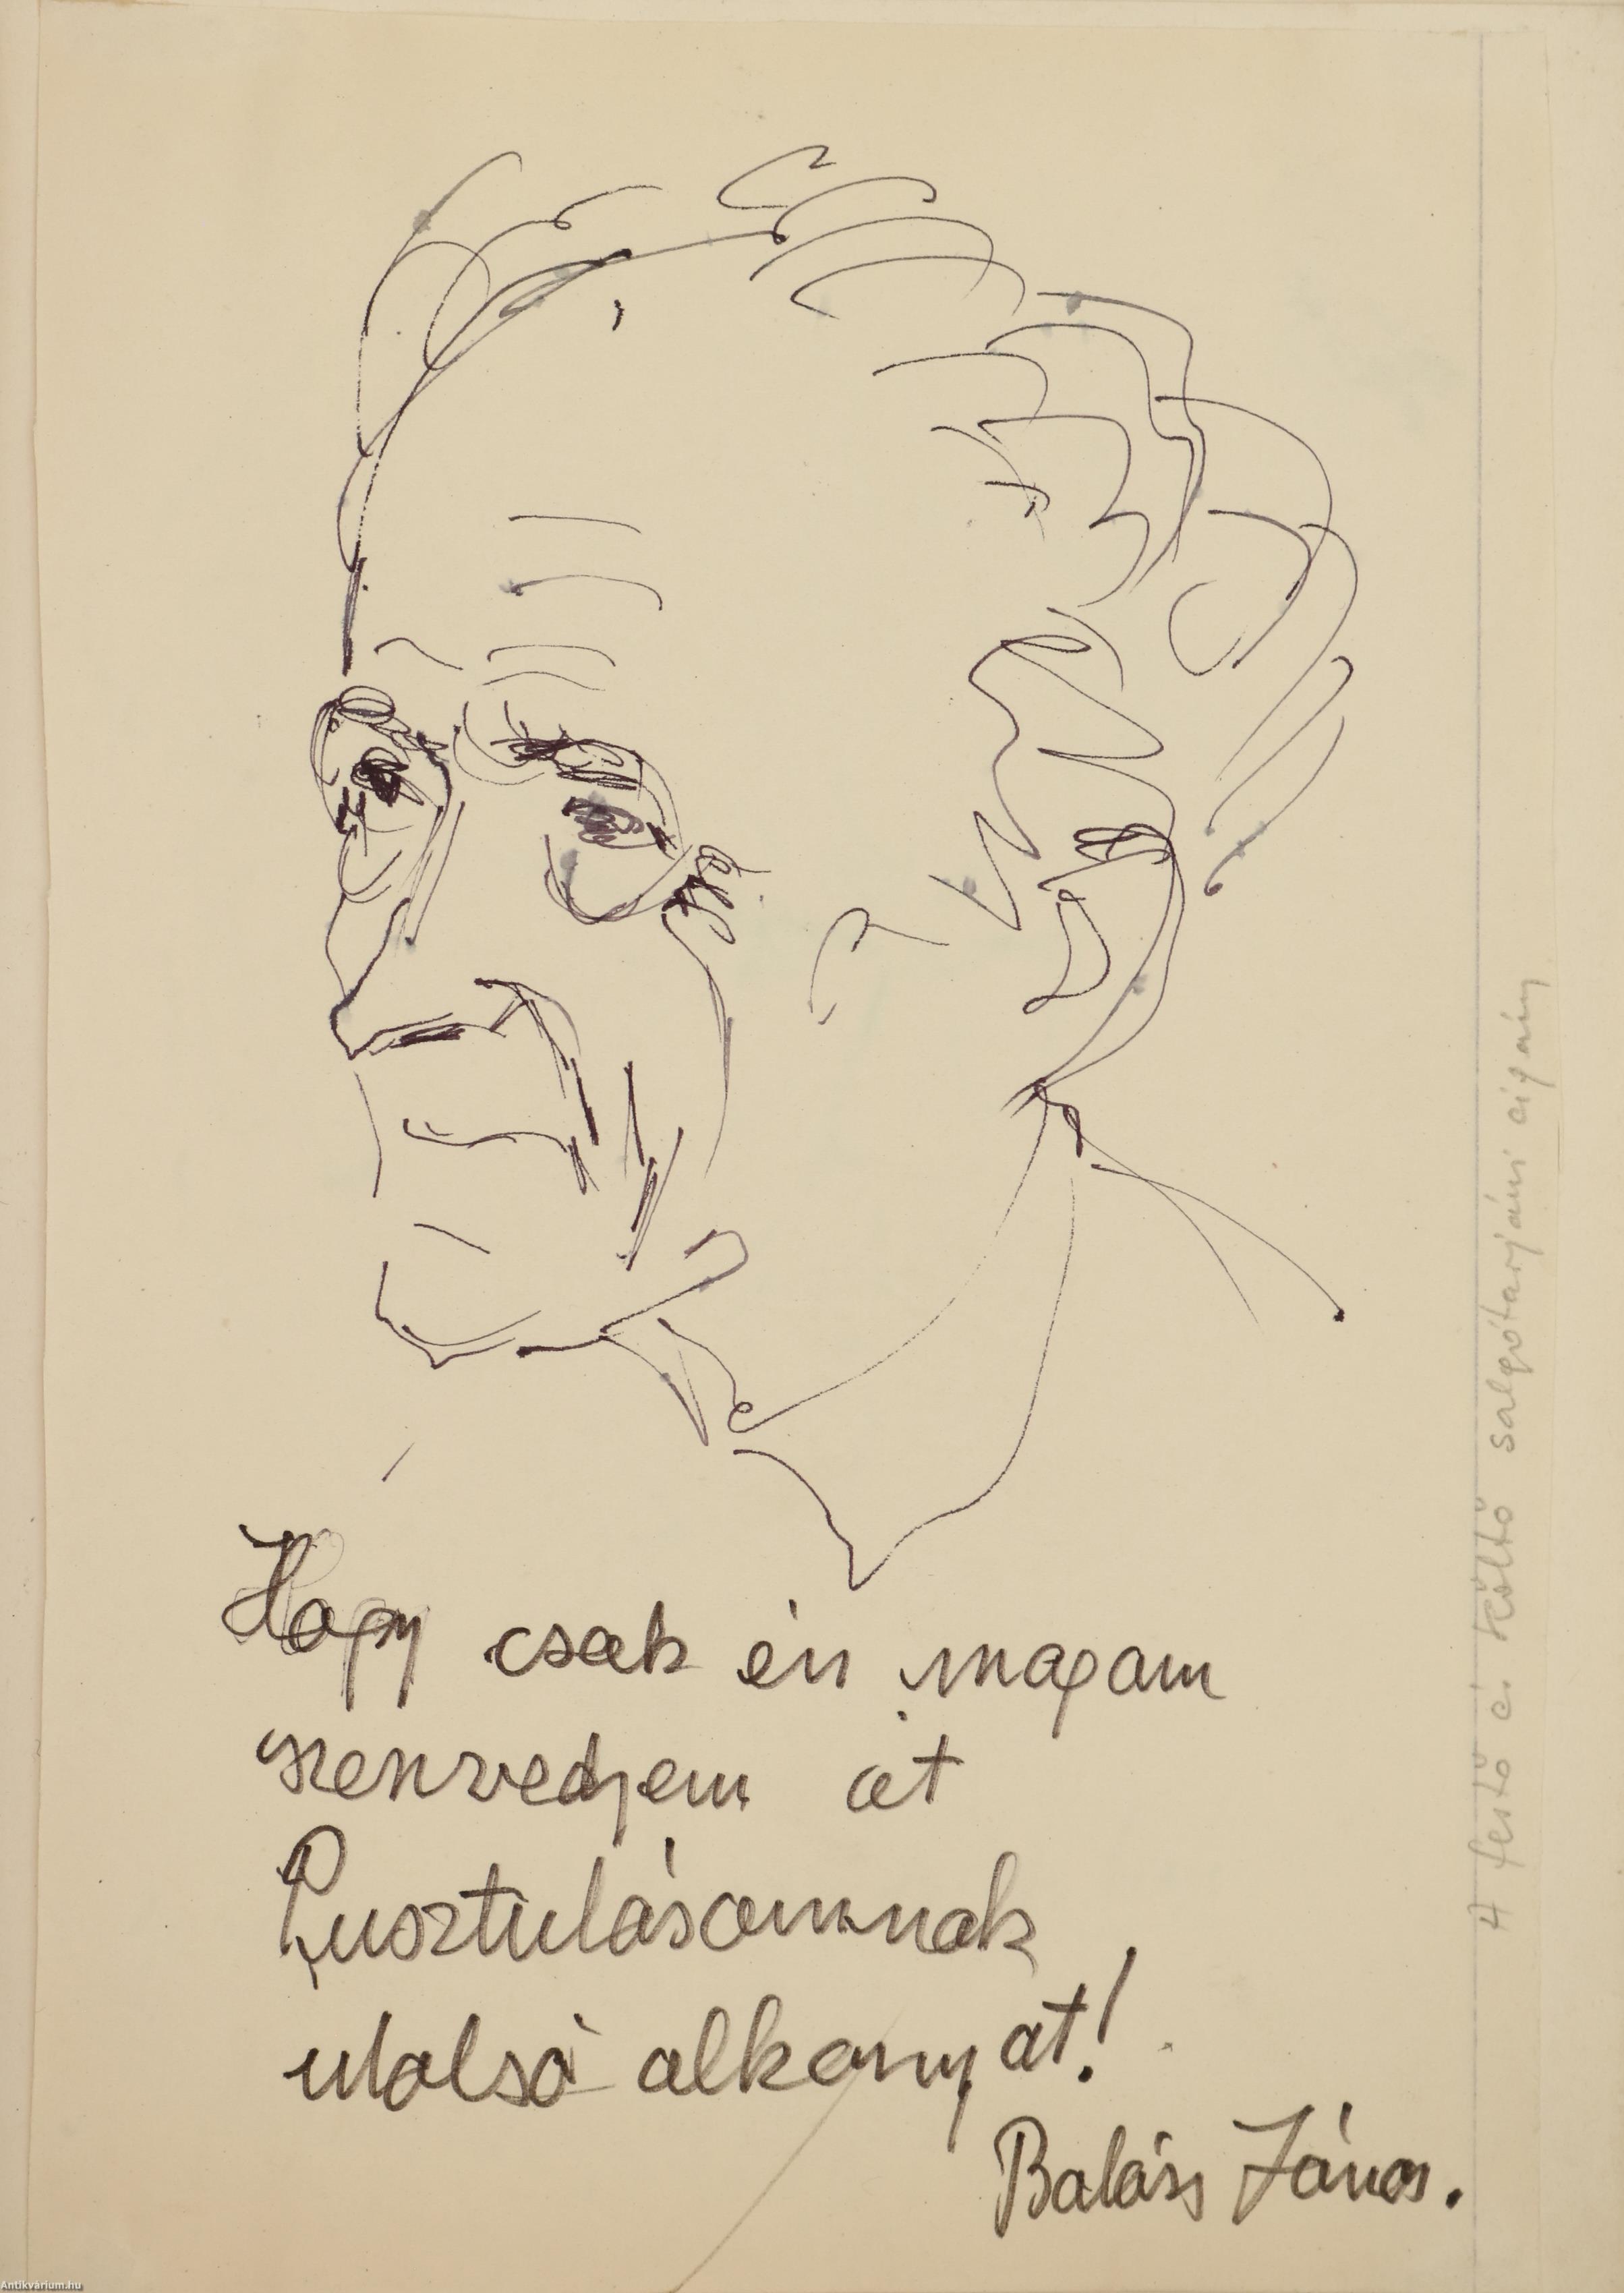 Hogy csak én magam
szenvedjem át
Pusztulásomnak
utolsó alkonyát!
Balázs János.
A festő és költő salgótarjáni cigány
Antikvárium.hu